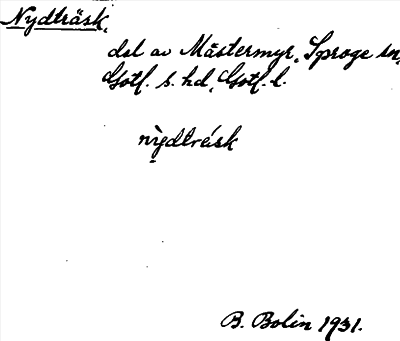 Nydträsk,
del av Mästermyr, Sproge sn,
Gotl. s. hd, Gotl. l.
nydträsk
B. Bolin 1931.